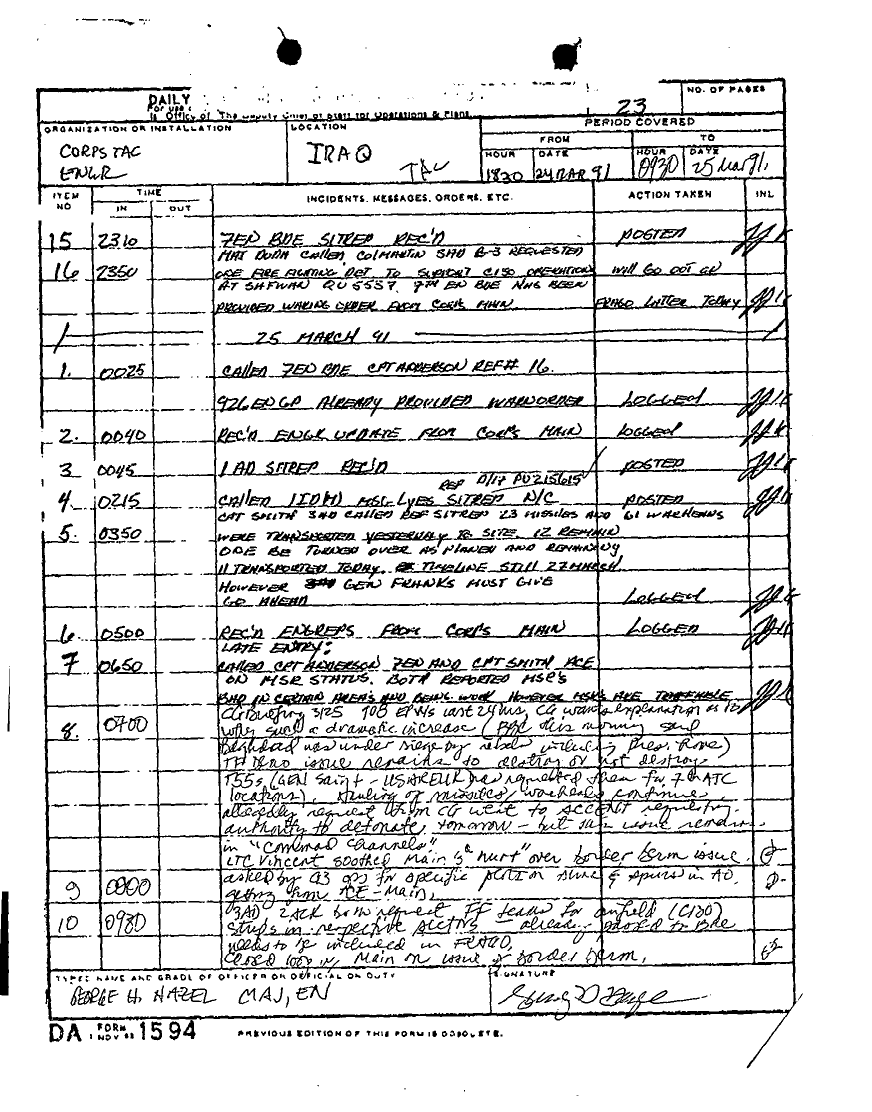 DAILY
NO. OF PAGES
For use
Office of The Deputy Chief of Staff for Operations & Plans
23
ORGANIZATION OR INSTALLATION
LOCATION
PERIOD COVERED
CORPS TAC
ENGR
IRAQ
TAC
FROM
TO
HOUR DATE HOUR DATE
1830 24 MAR 91 0930 25 MAR 91
ITEM NO
TIME
IN OUT
INCIDENTS, MESSAGES, ORDERS, ETC.
ACTION TAKEN
INL
15 2310 7EN BDE SITREP REC'D POSTED
16 2350 MAJ DUDA CALLED, COL MARTIN SAID G-3 REQUESTED
ONE FIRE FIGHTING DET TO SUPPORT C130 OPERATIONS will GO OUT AS
AT SAFWAN QU 5537. 7TH EN BDE HAS BEEN
PROVIDED WARING ORDER FROM CORPS MAIN. FRAGO LATTER TODAY
25 MARCH 91
1. 0025 CALLED 7EN BDE CPT ANDERSON REF# 16.
926 EN GP ALREADY PROVIDED WARNORDER LOGGED
2. 0040 REC'D ENGR UPDATE FROM CORPS MAIN LOGGED
3 0045 1 AD SITREP REC'D POSTED
4 0215 CALLED 1ID(M) MSG LYES SITREP N/C POSTED
5. 0350 CPT SMITH 3AD CALLED REF SITREP 23 MISSILES AND 61 WARHEADS
WERE TRANSPORTED YESTERDAY TO SITE. 12 REMAIN
ONE BE TURNED OVER AS PLANED AND REMAINING
11 TRANSPORTED TODAY. TIMELINE STILL 27 MARCH.
HOWEVER GEN FRANKS MUST GIVE
GO AHEAD LOGGED
6. 0500 REC'D ENGREPS FROM CORPS MAIN LOGGED
LATE ENTRY:
7 0650 CALLED CPT ANDERSON 7EN AND CPT SMITH ACE
ON MSR STATUS. BOTH REPORTED MSR'S
BAD IN CERTAIN AREA'S AND BEING WORK HOWEVER MSR'S ARE TRAFFICABLE
8. 0700 CG Briefing 3/25 108 EPWs last 24 hrs, CG wants explanation as to
why such a dramatic increase (BBC this morning said
Baghdad was under siege by rebels including Pres.
issue remains to destroy or not destroy
T55s (GEN Saint - USAREUR has requested them for 7th ATC
locations). Hauling of missiles/warheads continue,
allegedly request from CG went to ARCENT requesting
authority to detonate, tomorrow - but this issue remains
in "Command Channels"
LTC Vincent soothed Main's "hurt" over border berm issue.
9 0900 asked by G3 ops for specific plot on & in AO.
getting from ACE-Main.
10 0930 3AD, 2ACR both request FF teams for airfield (C130)
strips in respective sectors - already to Bde
needs to be included in FRAGO,
closed loop w/ Main on issue of border berm.
TYPED NAME AND GRADE OF OFFICER OR OFFICIAL ON DUTY
SIGNATURE
GEORGE H. HAZEL MAJ, EN
DA FORM 1594
1 NOV
PREVIOUS EDITION OF THIS FORM IS OBSOLETE.